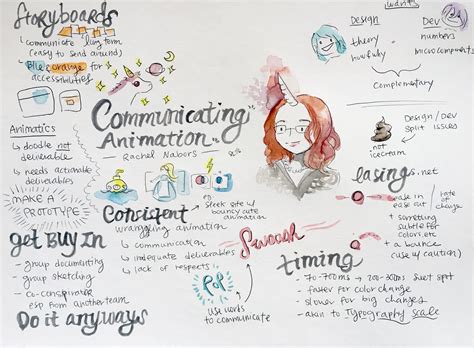 Storyboards
communicate long term
(easy to send around)
Blue & orange for
accessibilities
Animatics
doodle not
deliverable
needs actionable
deliverables
MAKE A
PROTOTYPE
get BUY IN
- group documenting
- group sketching
- co-conspirator
esp from another team
Do it anyways
Communicating
Animation
- Rachel Nabors
sleek site w/
bouncy cute animation
wrangling animation
communication
inadequate deliverables
lack of respects
Swoosh
POP
use verbs
to communicate
wants
Design
theory
how/why
Dev
numbers
microcomponents
complementary
not
icecream
Design/Dev
split issues
easings.net
ease in
ease out
rate of
change
+ something
subtle for
colors, etc
+ a bounce
(use w/ caution)
timing
70-700ms → 200-300ms sweet spot
- faster for color change
- slower for big changes
- akin to Typography scale